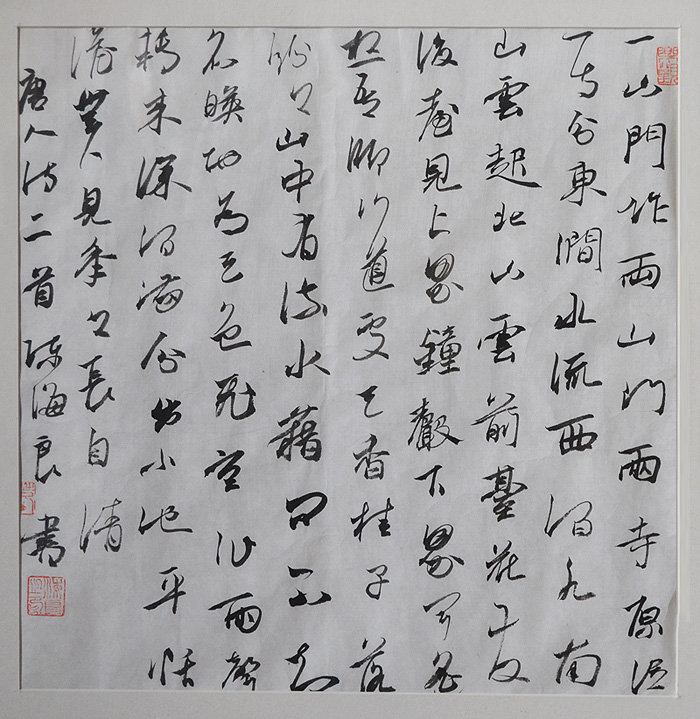 一山門作兩山門兩寺原從
一寺分東澗水流西澗水南
山雲起北山雲前臺花發
後臺見上界鐘聲下界聞遙
想吾師行道處天香桂子落
紛〻山中有流水藉問不知
名映地為天色飛空作雨聲
轉來深澗滿分出小池平恬
澹無人見年〻長自清
唐人詩二首 陳海良書